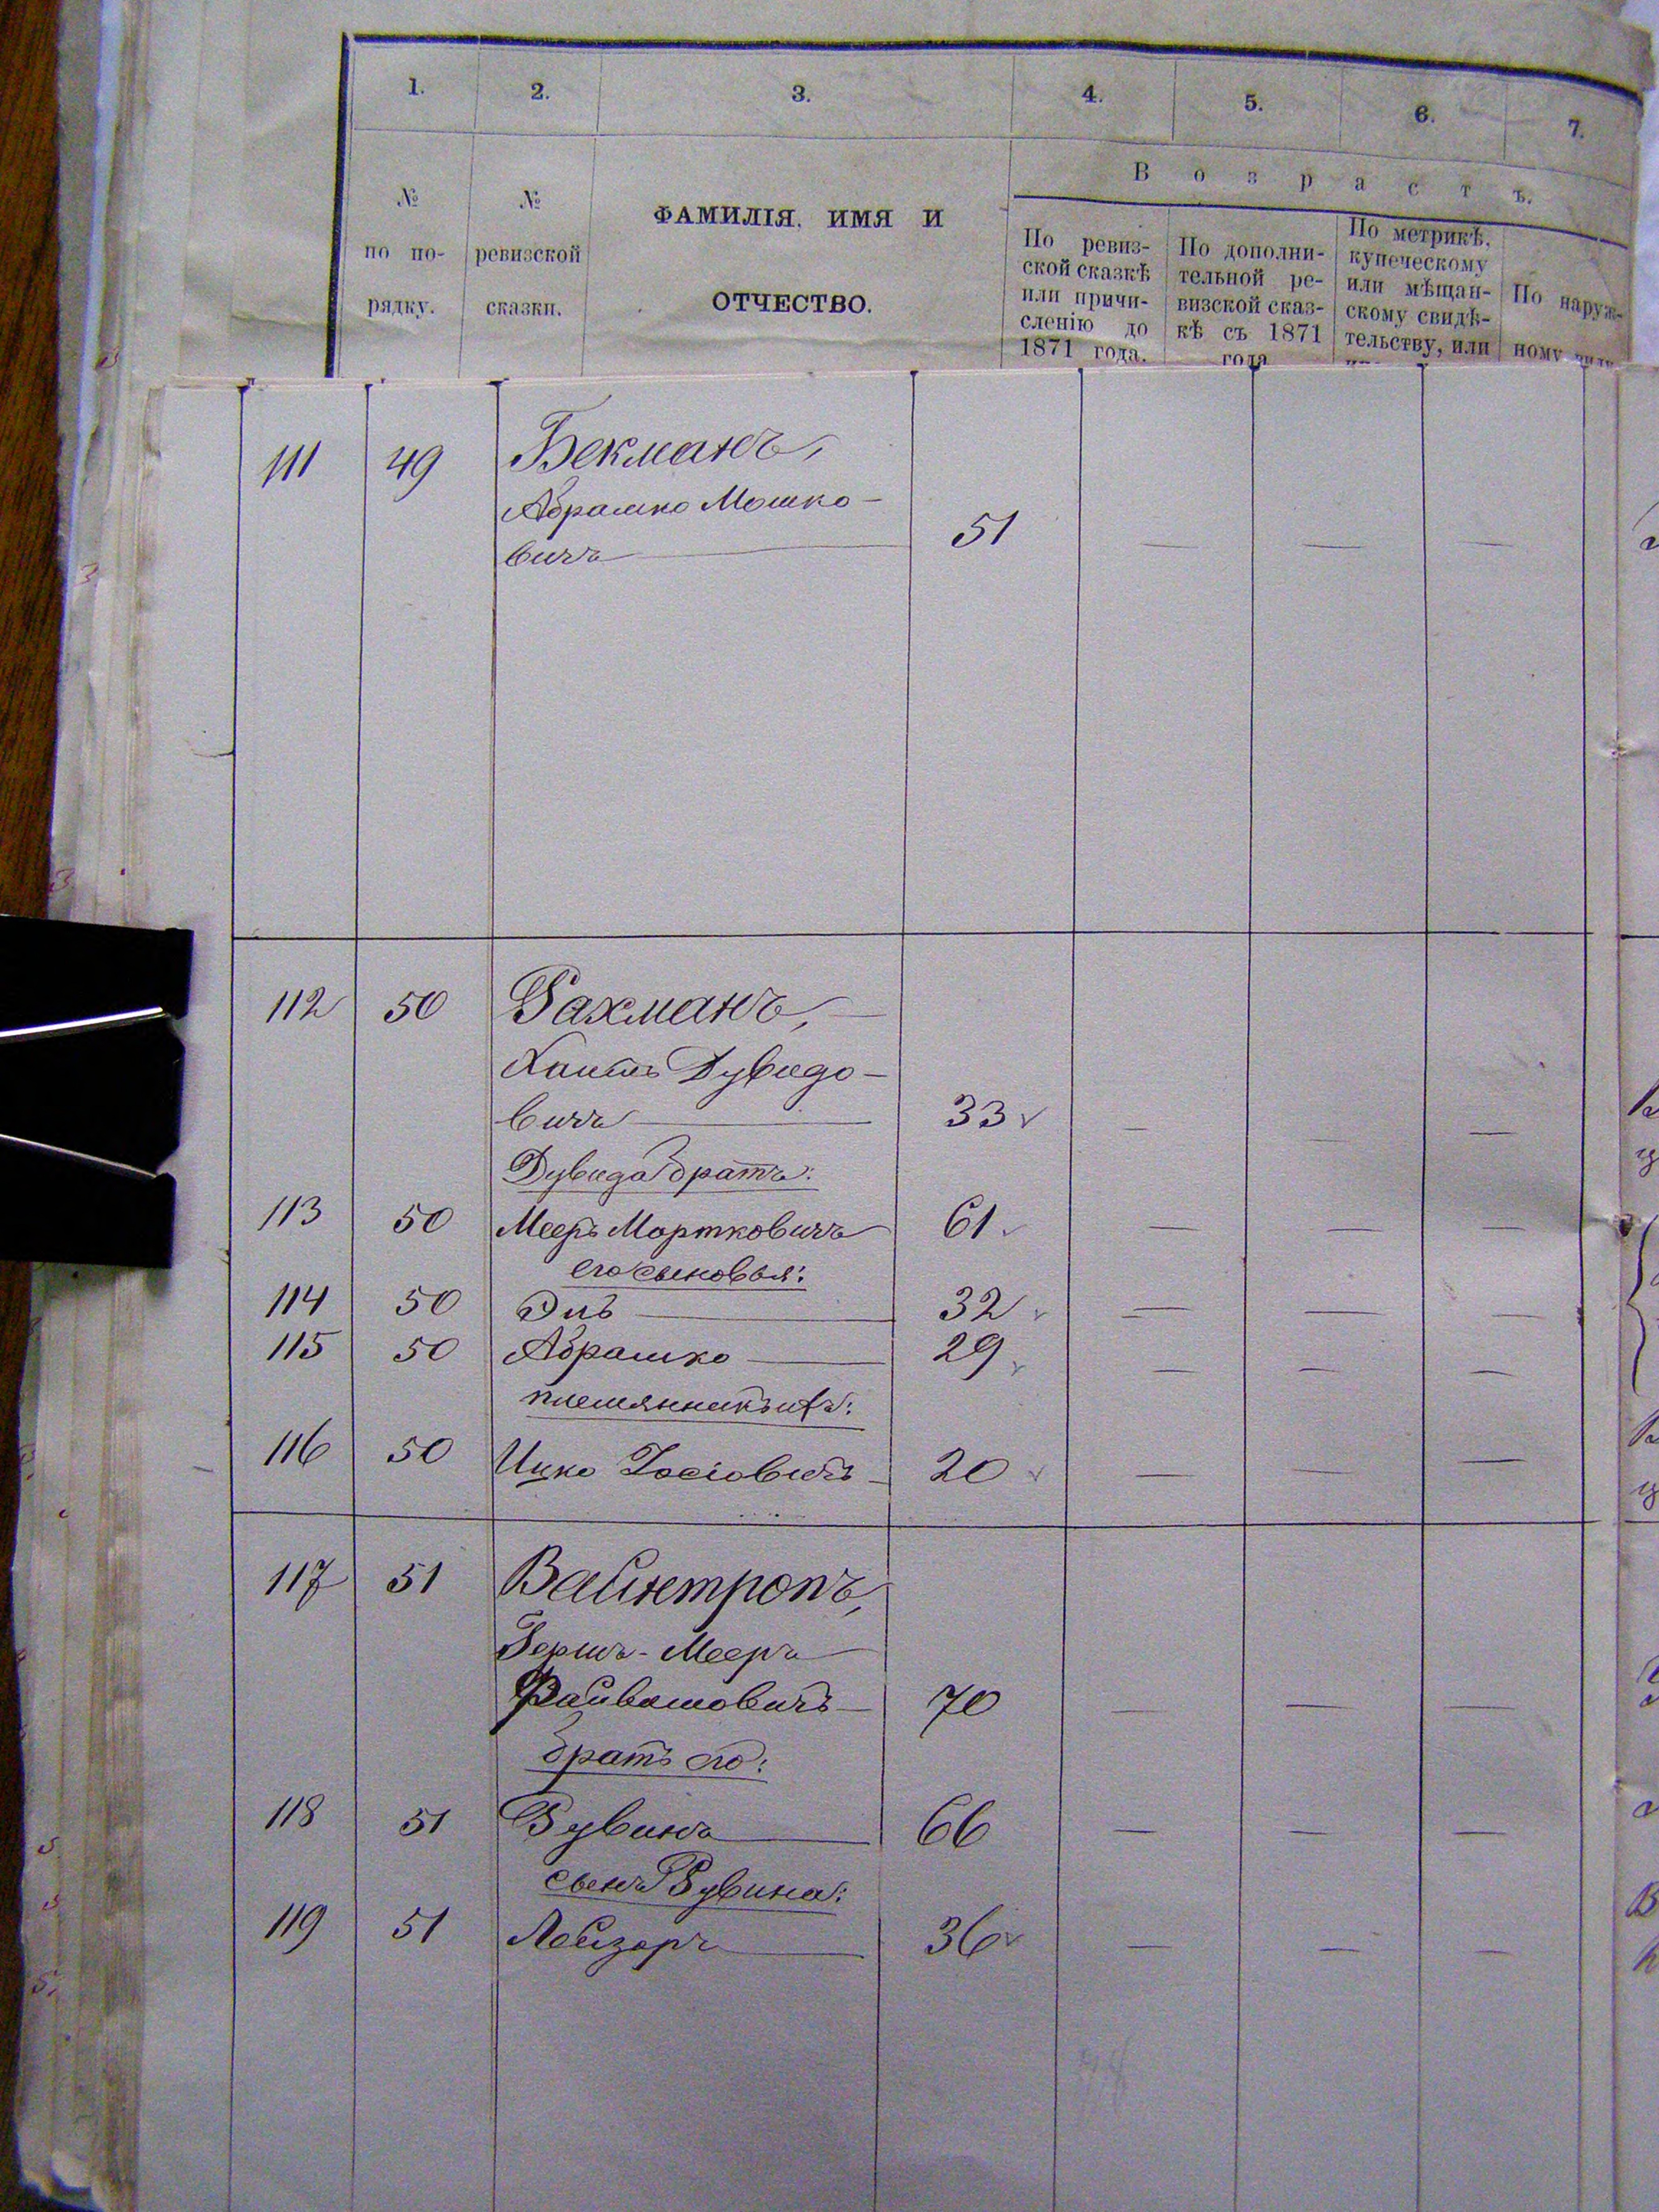 1. 2. 3. 4. 5. 6. 7.
№ по по-рядку.
№ ревизской сказки.
ФАМИЛІЯ, ИМЯ И
ОТЧЕСТВО.
В о з р а с т ъ.
По ревиз-
ской сказкѣ
или причи-
сленію до
1871 года.
По дополни-
тельной ре-
визской сказ-
кѣ съ 1871
года
По метрикѣ,
купеческому
или мѣщан-
скому свидѣ-
тельству, или
По наруж-
ному виду
111 49 Бекманъ,
Абрамко Мошко-
вичъ 51 — — —
112 50 Рахманъ,
Хаимъ Дувидо-
вичъ 33 — — —
Дувида братъ:
113 50 Мееръ Мортковичъ 61 — — —
его сыновья:
114 50 Эль 32 — — —
115 50 Абрамко 29 — — —
племянникъ ихъ:
116 50 Ицко Іосіовичъ 20 — — —
117 51 Вайнтропъ,
Гершъ-Мееръ
Файвишовичъ 70 — — —
братъ его:
118 51 Рувинъ 66 — — —
сынъ Рувина:
119 51 Лейзоръ 36 — — —